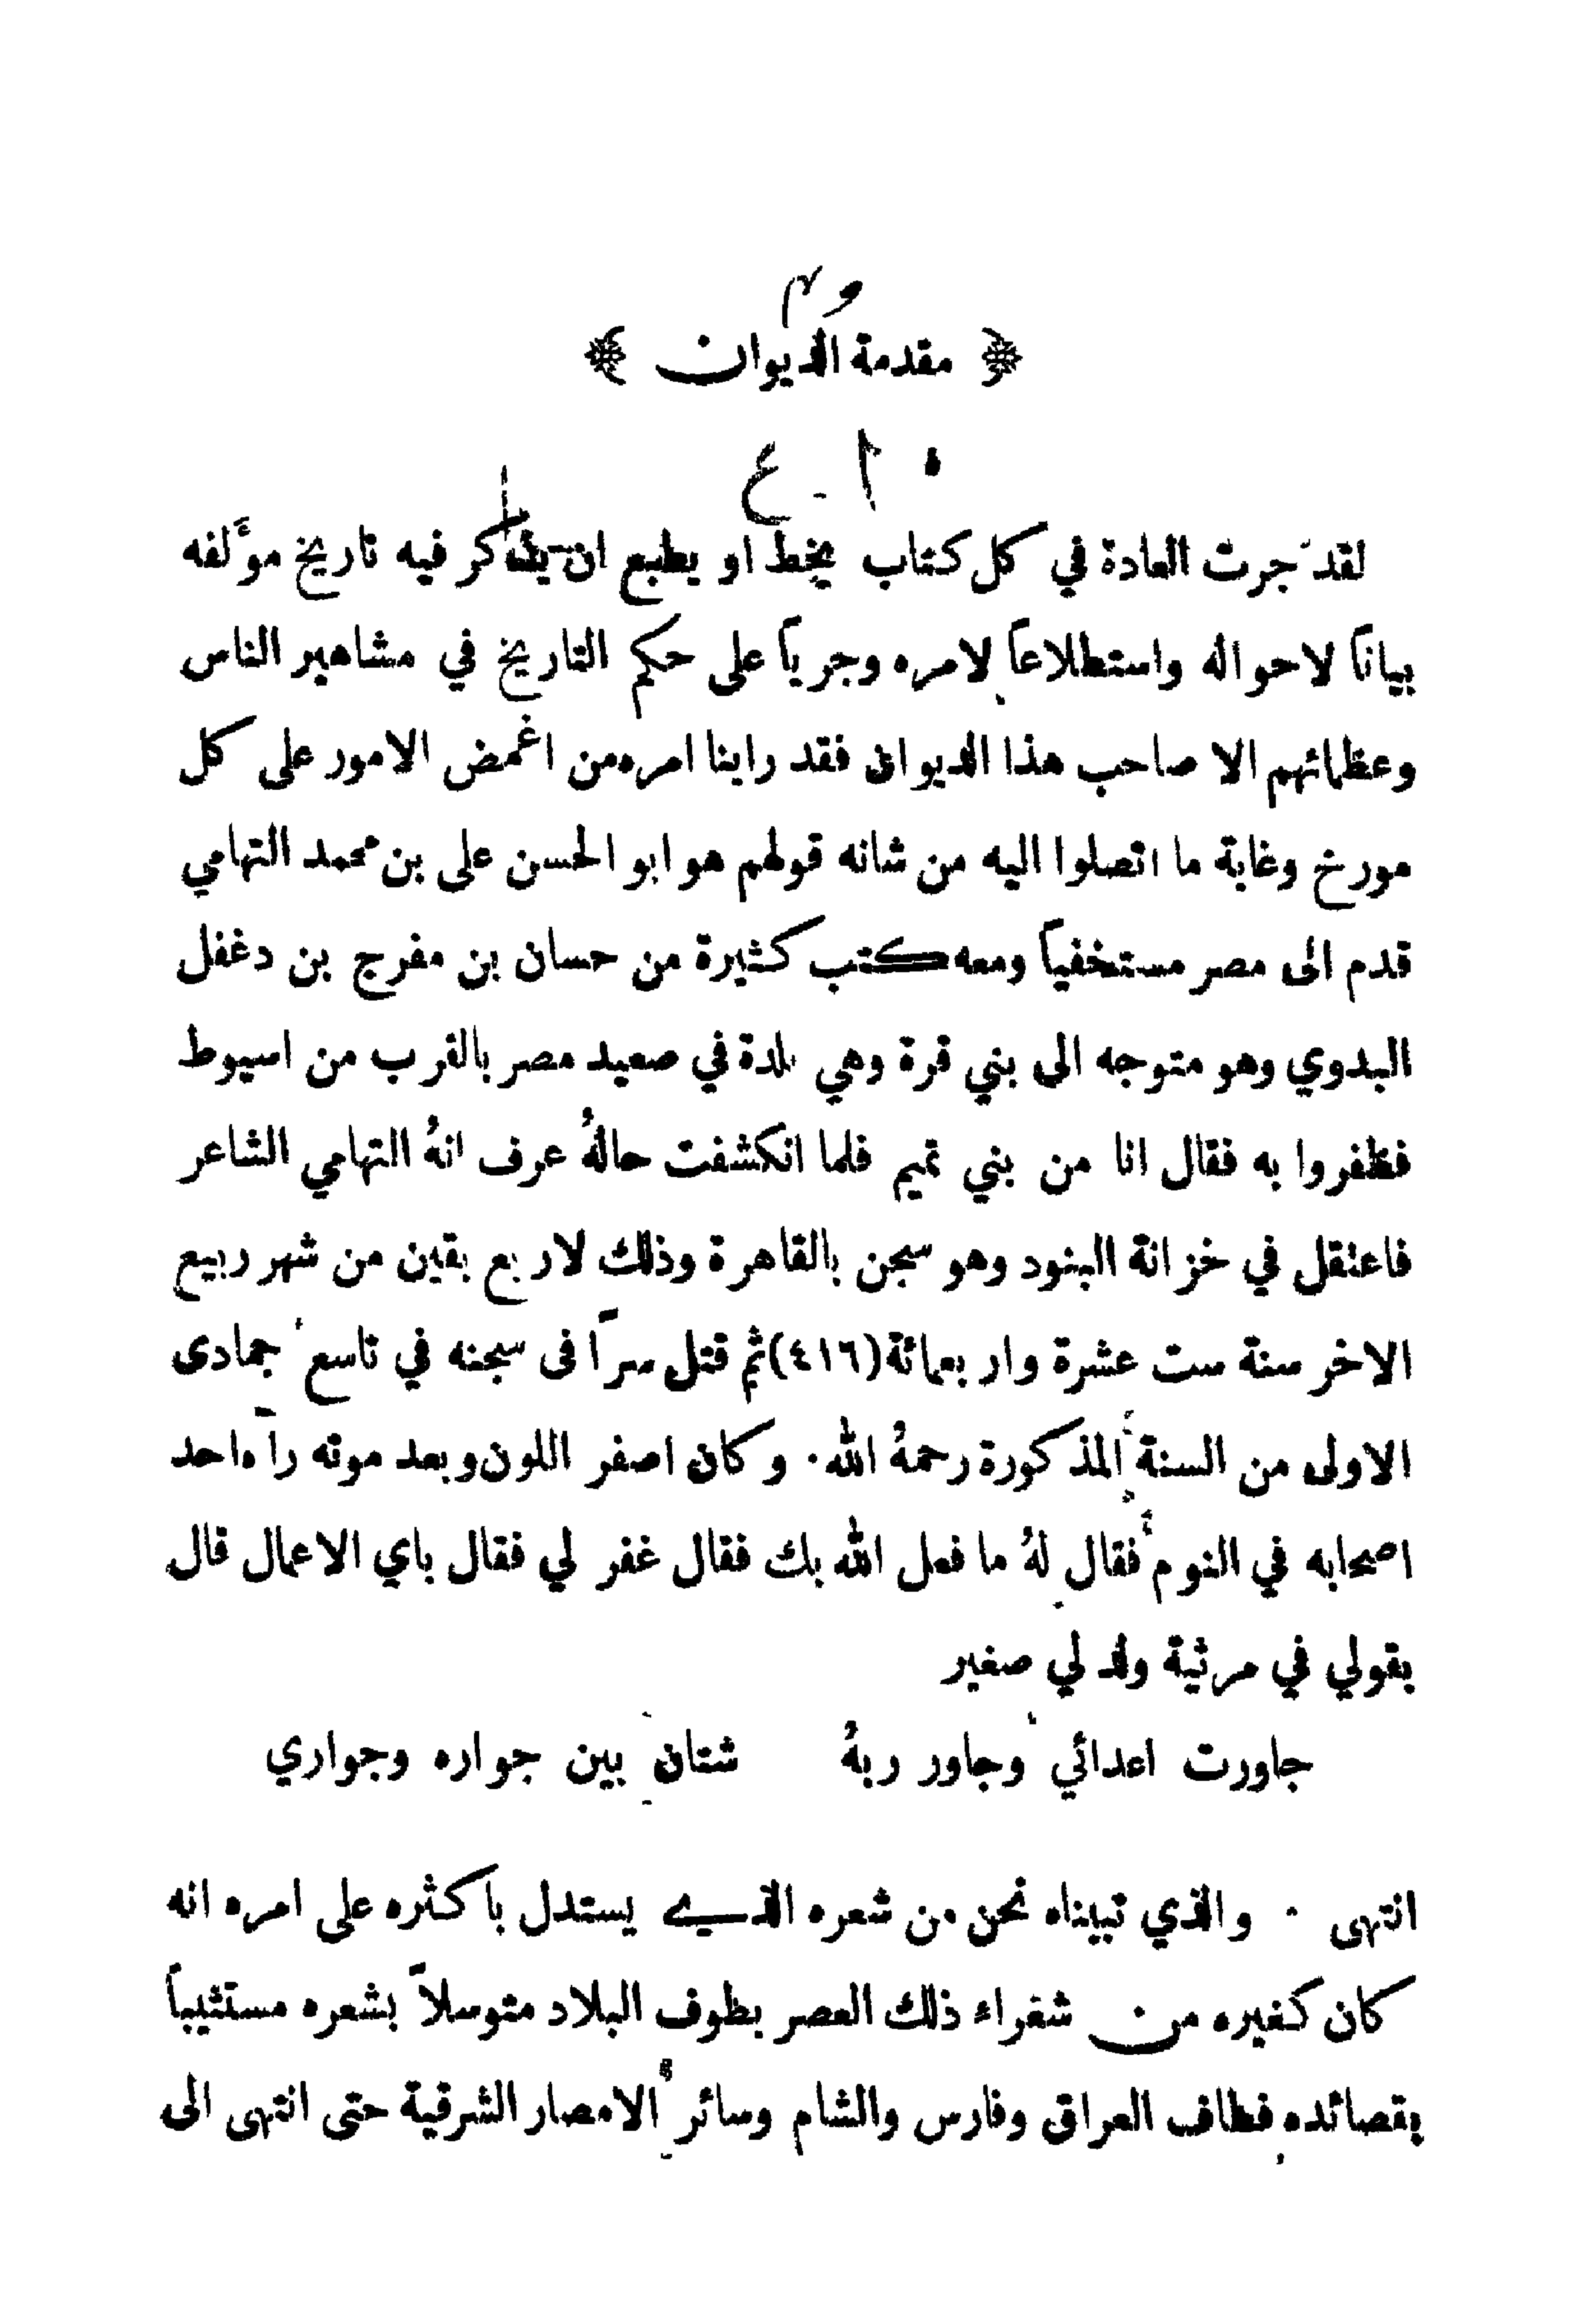 ﴿ مقدمة الديوان ﴾
لقد جرت العادة في كل كتاب يخط او يطبع ان يذكر فيه تاريخ مؤَلفه
بياناً لاحواله واستطلاعاً لامره وجرياً على حكم التاريخ في مشاهير الناس
وعظمائهم الا صاحب هذا الديوان فقد راينا امره من اغمض الامور على كل
مورخ وغاية ما اتصلوا اليه من شانه قولهم هو ابو الحسن على بن محمد التهامي
قدم الى مصر مستخفياً ومعه كتب كثيرة من حسان بن مفرج بن دغفل
البدوي وهو متوجه الى بني قرة وهي بلدة في صعيد مصر بالقرب من اسيوط
فظفروا به فقال انا من بني تميم فلما انكشفت حالهُ عرف انهُ التهامي الشاعر
فاعتقل في خزانة البنود وهو سجن بالقاهرة وذلك لاربع بقين من شهر ربيع
الاخر سنة ست عشرة واربعمائة (٤١٦) ثم قتل سراً فى سجنه في تاسع جمادى
الاولى من السنة المذكورة رحمهُ الله ٠ وكان اصفر اللون وبعد موته رآه احد
اصحابه في النوم فقال لهُ ما فعل الله بك فقال غفر لي فقال باي الاعمال قال
بقولي في مرثية ولد لي صغير
جاورت اعدائي وجاور ربهُ شتان بين جواره وجواري
انتهى ٠ والذي تبيناه نحن من شعره الذي يستدل باكثره على امره انه
كان كغيره من شغراء ذلك العصر بطوف البلاد متوسلاً بشعره مستثيباً
بقصائده فطاف العراق وفارس والشام وسائر الامصار الشرقية حتى انتهى الى